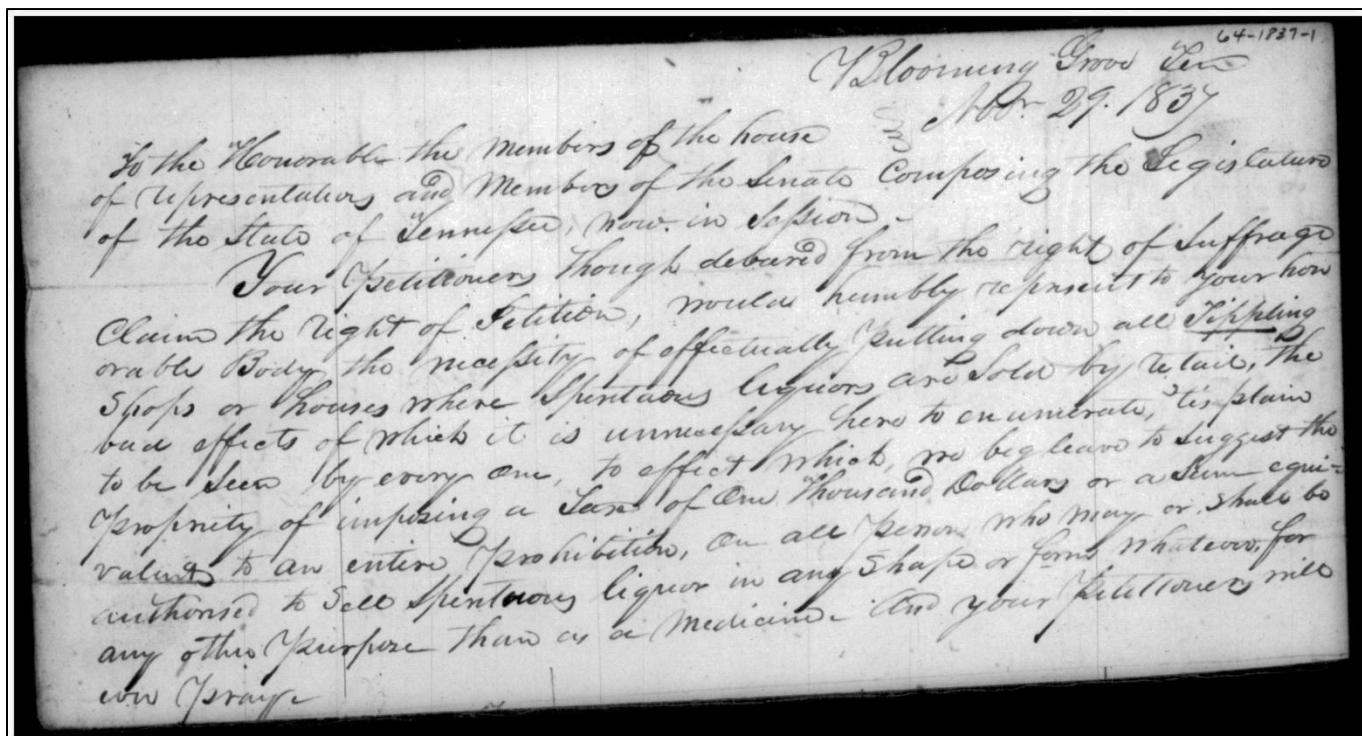 64-1837-1
Blooming Grove Ten
Nov. 29. 1837
To the Honorable the members of the house
of representatives and Members of the Senate Composing the Legislature
of the State of Tennessee, now in Session -
Your Petitioners though debared from the right of Suffrage
Claim the right of Petition, would humbly represent to your hon
orable Body the necessity of effectually putting down all Tippling
Shops or houses where Spirituous liquors are Sold by retail, the
bad effects of which it is unnecessary here to enumerate, 'tis plain
to be Seen by every one, to effect which, we beg leave to Suggest the
propriety of imposing a Tax of One Thousand Dollars or a Sum equi-
valent to an entire Prohibition, on all Person who may or Shall be
authorised to Sell Spirituous liquor in any Shape or form whatever, for
any other Purpose than as a Medicine. And your Petitioners will
ever Pray